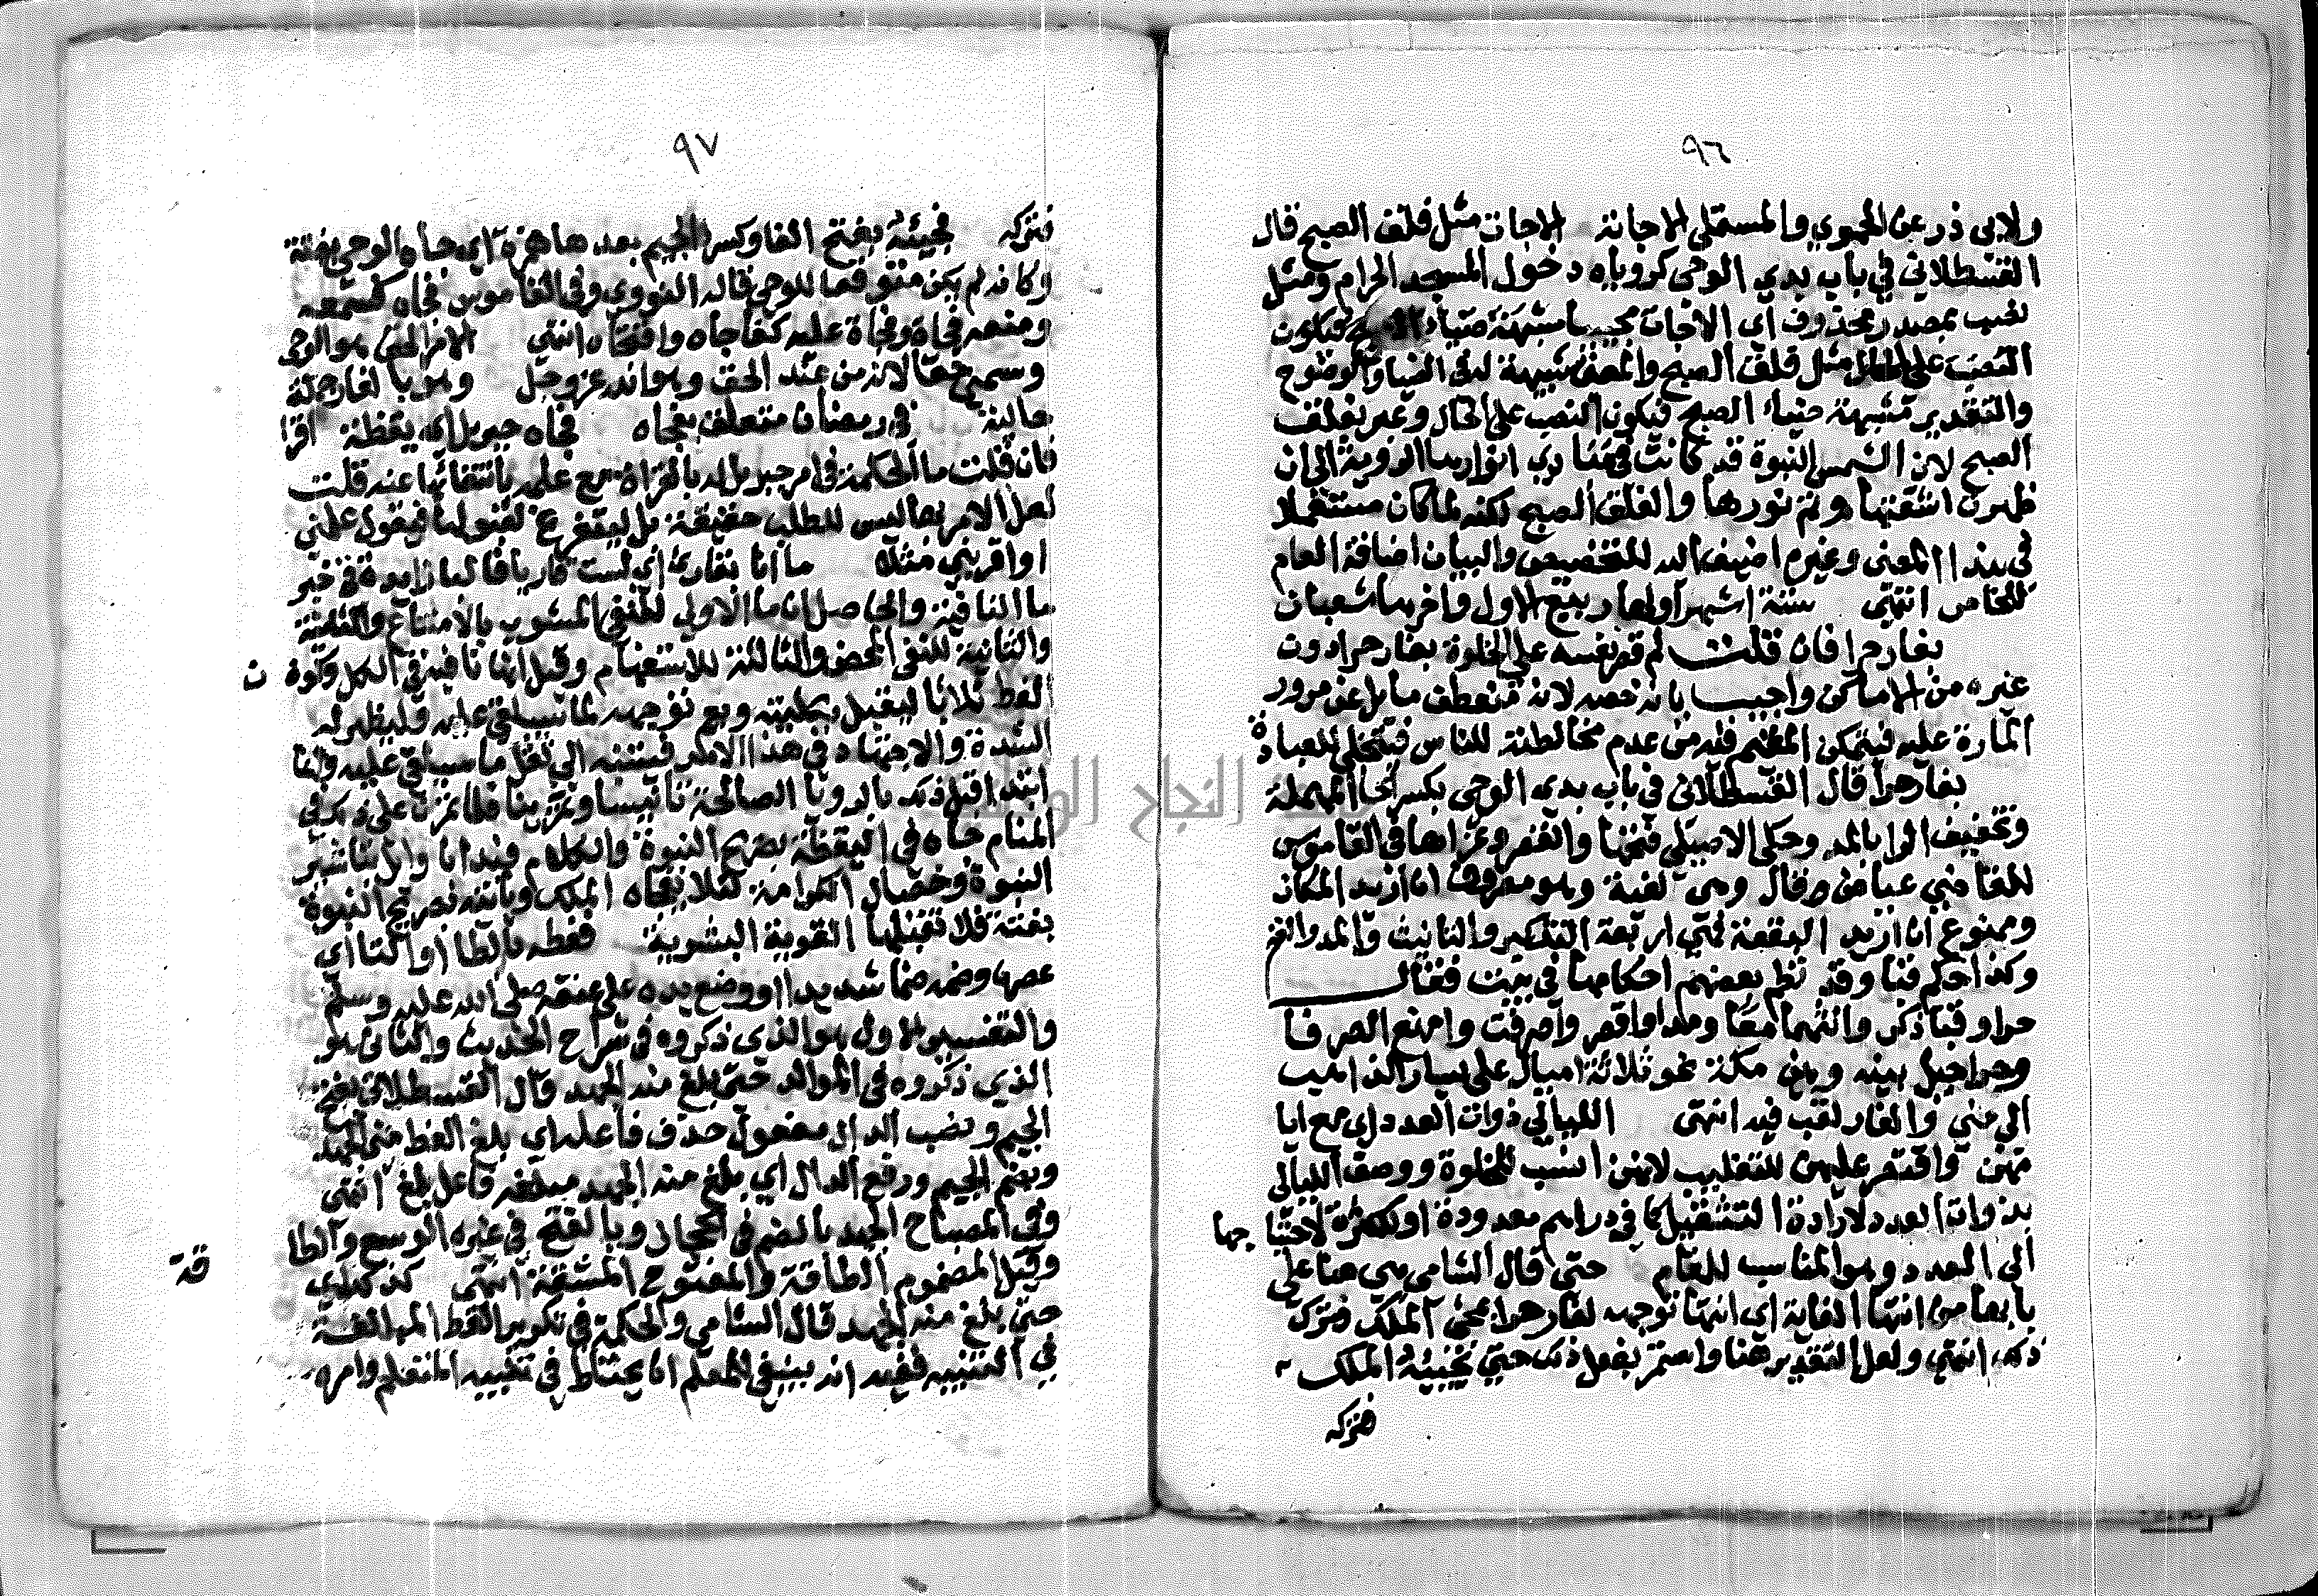 ٩٦
ولابي ذر عن الحموي والمستملي الاجات الاجات مثل فلق الصبح قال
القسطلاني في باب بدي الوحي كروياه دخول المسجد الحرام ومثل
نصب بمصدر محذوف اي الاجات مجيا مشبهة ضياء الصبح فيكون
النصب على الحال مثل فلق الصبح والمعنى شبيهة له في الضيا والوضوح
والتقدير مشبهة ضياء الصبح فيكون النصب على الحال وعبر بفلق
الصبح لان الشمس النبوة قد كانت مبادي انوارها الرويا الى ان
ظهرت اشعتها وتم نورها والفلق الصبح لكنه لما كان مستعملا
في هذا المعنى وغيره اضيف اليه للتخصيص والبيان اضافة العام
للخاص انتهى ستة اشهر اولها ربيع الاول واخرها شعبان
بغار حرا فان قلت لم قصر نفسه على الخلوة بغار حرا دون
غيره من الاماكن واجيب بانه خصه لانه منعطف مايل عن مرور
المارة عليه فيتمكن المقيم فيه من عدم مخالطته للناس فيتخلى للعبادة
بغار حرا قال القسطلاني في باب بدي الوحي بكسر الحا المهملة
وتخفيف الرا بالمد وحكى الاصيلي فتحها والقصر وعزاها في القاموس
للقاضي عياض قال وهي لغية وهو مصروف ان اريد المكان
وممنوع ان اريد البقعة فهي اربعة التذكير والتانيث والمد والقصر
وكذا حكم قبا وقد نظم بعضهم احكامها في بيت فقال
حرا وقبا ذكر وانثهما معا ومد او اقصر واصرفن وامنع الصرفا
وحرا جبل بينه وبين مكة نحو ثلاثة اميال على يسار الذاهب
الى منى والغار نقب فيه انتهى الليالي ذوات العدد اي مع ايا
مهن واقتصر عليهن للتغليب لانهن انسب للخلوة ووصف الليالي
بذوات العدد لارادة التقليل كما في دراهم معدودة او لكثرة لاحتيا جها
الى العدد وهو المناسب للمقام حتى قال الشامي هي هنا على
بابها من انتها الغاية اي انتها توجهه لغار حرا بمجئ الملك فترك
ذلك انتهى ولعل التقدير هنا واستمر يفعل ذلك حتى فجئه الملك
فترك
٩٧
فترك فجئه بفتح الفا وكسر الجيم بعدها همزة اي جاه الوحي بغتة
وكانه لم يكن متوقعا للوحي قاله النووي وفي القاموس فجاه كسمعه
ومنعه فجاة وفجاة عليه كفاجاه وافتجاه انتهى الامر الحق هو الوحي
وسمي حقا لانه من عند الحق وهو الله عز وجل وهو بالغار جملة
حالية في رمضان متعلق بفجاه فجاه جبريل اي يقظة اقرا
فان قلت ما الحكمة في امر جبريل له بالقراة مع علمه بانتفائها عنه قلت
لعل الامر بها ليس للطلب حقيقة بل ليتفرع لقبولها فيقول علمني
او اقريني مثلا ما انا بقارئ اي لست قاريا فالبا زايدة في خبر
ما النافية والحاصل ان ما الاولى للنفي المشوب بالامتناع
والثانية للنفي المحض والثالثة للاستفهام وقيل انها نافية في الكل وكون
الغط ثلاثا ليقبل بكليته ومع توجهه لما سيلقى عليه وليظهر له
الشدة والاجتهاد في هذا الامر فيتنبه الى ثقل ما سيلقى عليه وانما
ابتدا قبل ذلك بالرويا الصالحة تانيسا وتمرينا فلما تمرن على ذلك في
المنام جاه في اليقظة بصريح النبوة والكلام فبدا باوايل تباشير
النبوة وخصال الكرامة لئلا يفجاه الملك وياتيه بصريح النبوة
بغتة فلا تقبلها القوية البشرية فغطه بالطا او التا اي
عصره وضمه ضما شديدا او وضع يده على عنقه صلى الله عليه وسلم
والتفسير الاول هو الذي ذكروه في شراح الحديث والثاني هو
الذي ذكروه في الموالد حتى بلغ منه الجهد قال القسطلاني بفتح
الجيم ونصب الدال مفعول حذف فاعله اي بلغ الغط مني الجهد
وبضم الجيم ورفع الدال اي بلغ منه الجهد مبلغه فاعل بلغ انتهى
وفي المصباح الجهد بالضم في الحجاز وبالفتح في غيره الوسع والطا قة
وقيل المضموم الطاقة والمفتوح المشقة انتهى كذلك اي
حتى بلغ منه الجهد قال الشامي والحكمة في تكرير الغط المبالغة
في التنبيه ففيه انه ينبغي للمعلم ان يحتاط في تنبيه المتعلم وامره